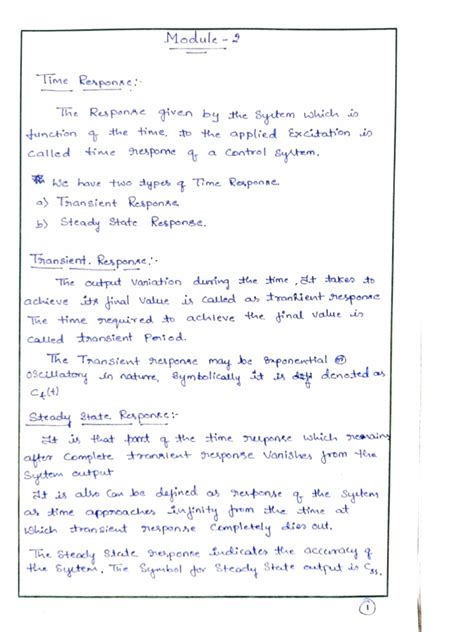 Module - 2
Time Response:-
The Response given by the System which is
function of the time, to the applied Excitation is
called time response of a Control System.
* We have two types of Time Response.
a) Transient Response
b) Steady State Response.
Transient Response:-
The output variation during the time, It takes to
achieve its final value is called as transient response
The time required to achieve the final value is
called transient Period.
The Transient response may be Exponential or
Oscillatory in nature, Symbolically it is denoted as
Ct(t)
Steady State Response:-
It is that part of the time response which remains
after Complete transient response Vanishes from the
System output
It is also Can be defined as response of the System
as time approaches infinity from the time at
which transient response Completely dies out.
The Steady State response indicates the accuracy of
the System. The Symbol for Steady State output is Css.
1